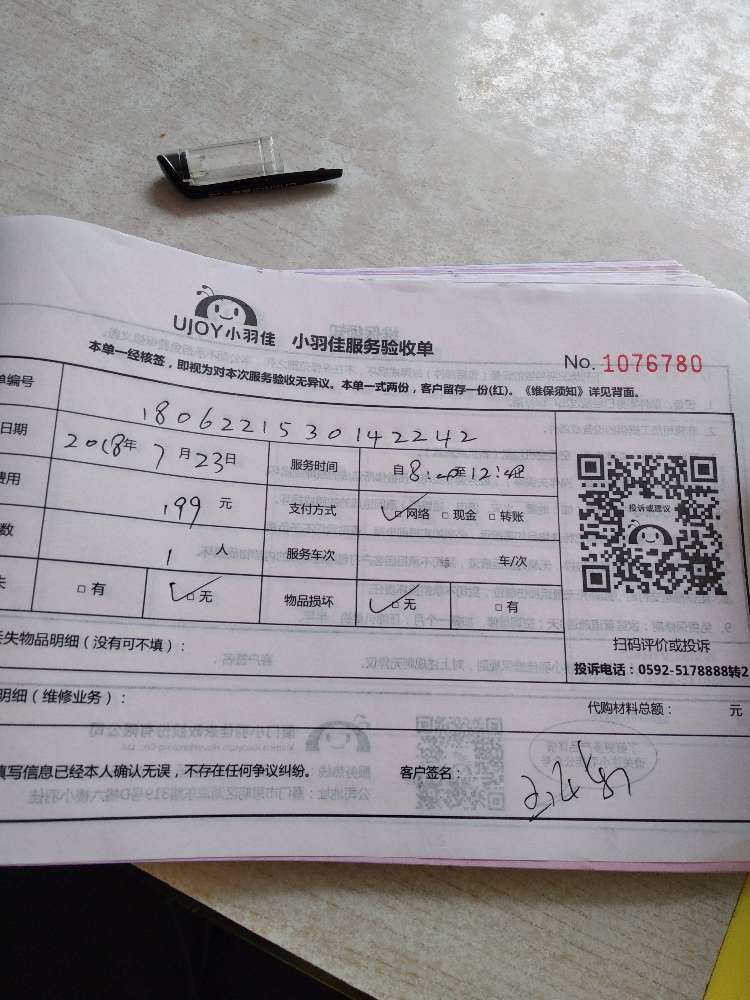 UJOY小羽佳 小羽佳服务验收单
No. 1076780
本单一经核签,即视为对本次服务验收无异议。本单一式两份,客户留存一份(红)。《维保须知》详见背面。
单编号 1806221530142242
日期 2018年 7月23日 服务时间 自8: 至12:
费用 199 元 支付方式 网络 现金 转账
数 1 人 服务车次 车/次
失 有 无 物品损坏 无 有
投诉或建议
扫码评价或投诉
投诉电话:0592-5178888转2
丢失物品明细(没有可不填):
明细(维修业务): 代购材料总额: 元
填写信息已经本人确认无误,不存在任何争议纠纷。 客户签名: